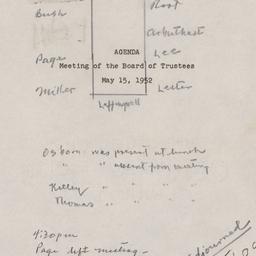 Bush
Root
Arbuthnot
Page
AGENDA
Lee
Meeting of the Board of Trustees
May 15, 1952
Miller
Lester
Leffingwell
Osborn was present at lunch
" " absent from meeting
Kelley " " "
Thomas " " "
4:30 pm
Page left meeting -
adjourned